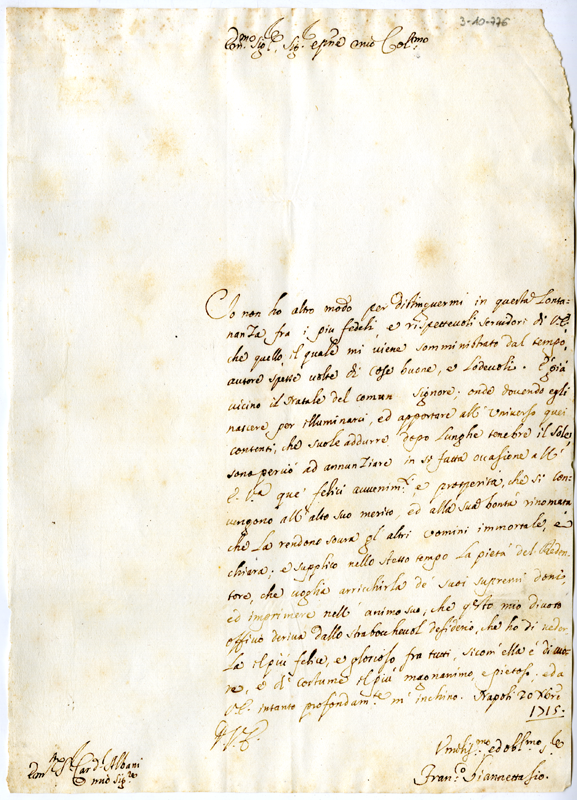 3-10-776
Em.mo Sig.r, Sig.r e p̃ne mio Col.mo
Io non ho altro modo per distinguermi in questa Lonta-
nanza fra i piu fedeli, e rispettevoli servidori di V.E.
che quello, il quale mi viene somministrato dal tempo,
autore spesse volte di cose buone, e Lodevoli. E già
vicino il Natale del comun Signore; onde dovendo egli
nascere per illuminarci, ed apportare all'Universo quei
contenti, che suole addurre dopo Lunghe tenebre il Sole,
sono perciò ad annunziare in sì fatta ovasione all'
E. V.ra que' felici avvenim.ti e prosperità, che si con-
vengono all'alto suo merito, ed alla sua bontà rinomata
che La rendono sovra gl'altri Uomini immortale, e
chiara. e supplico nello stesso tempo La pietà del Reden-
tore, che voglia arricchirla de' suoi supremi doni,
ed imprimere nell'animo suo, che q.sto mio divoto
offivio deriva dallo strabocchevol desiderio, che ho di veder-
La il più felice, e glorioso, fra tutti, sicom'ella è di cuo-
re, e di costume il più magnanimo, e pietoso. ed a
V.E. intanto profondam.te m'inchino. Napoli 20 Xbre
1715.
D V.E.
Em.mo S.r Card. Albani
mio Sig.re
Umiliss.mo ed obl.mo S.re
Fran.co Giannettasio.